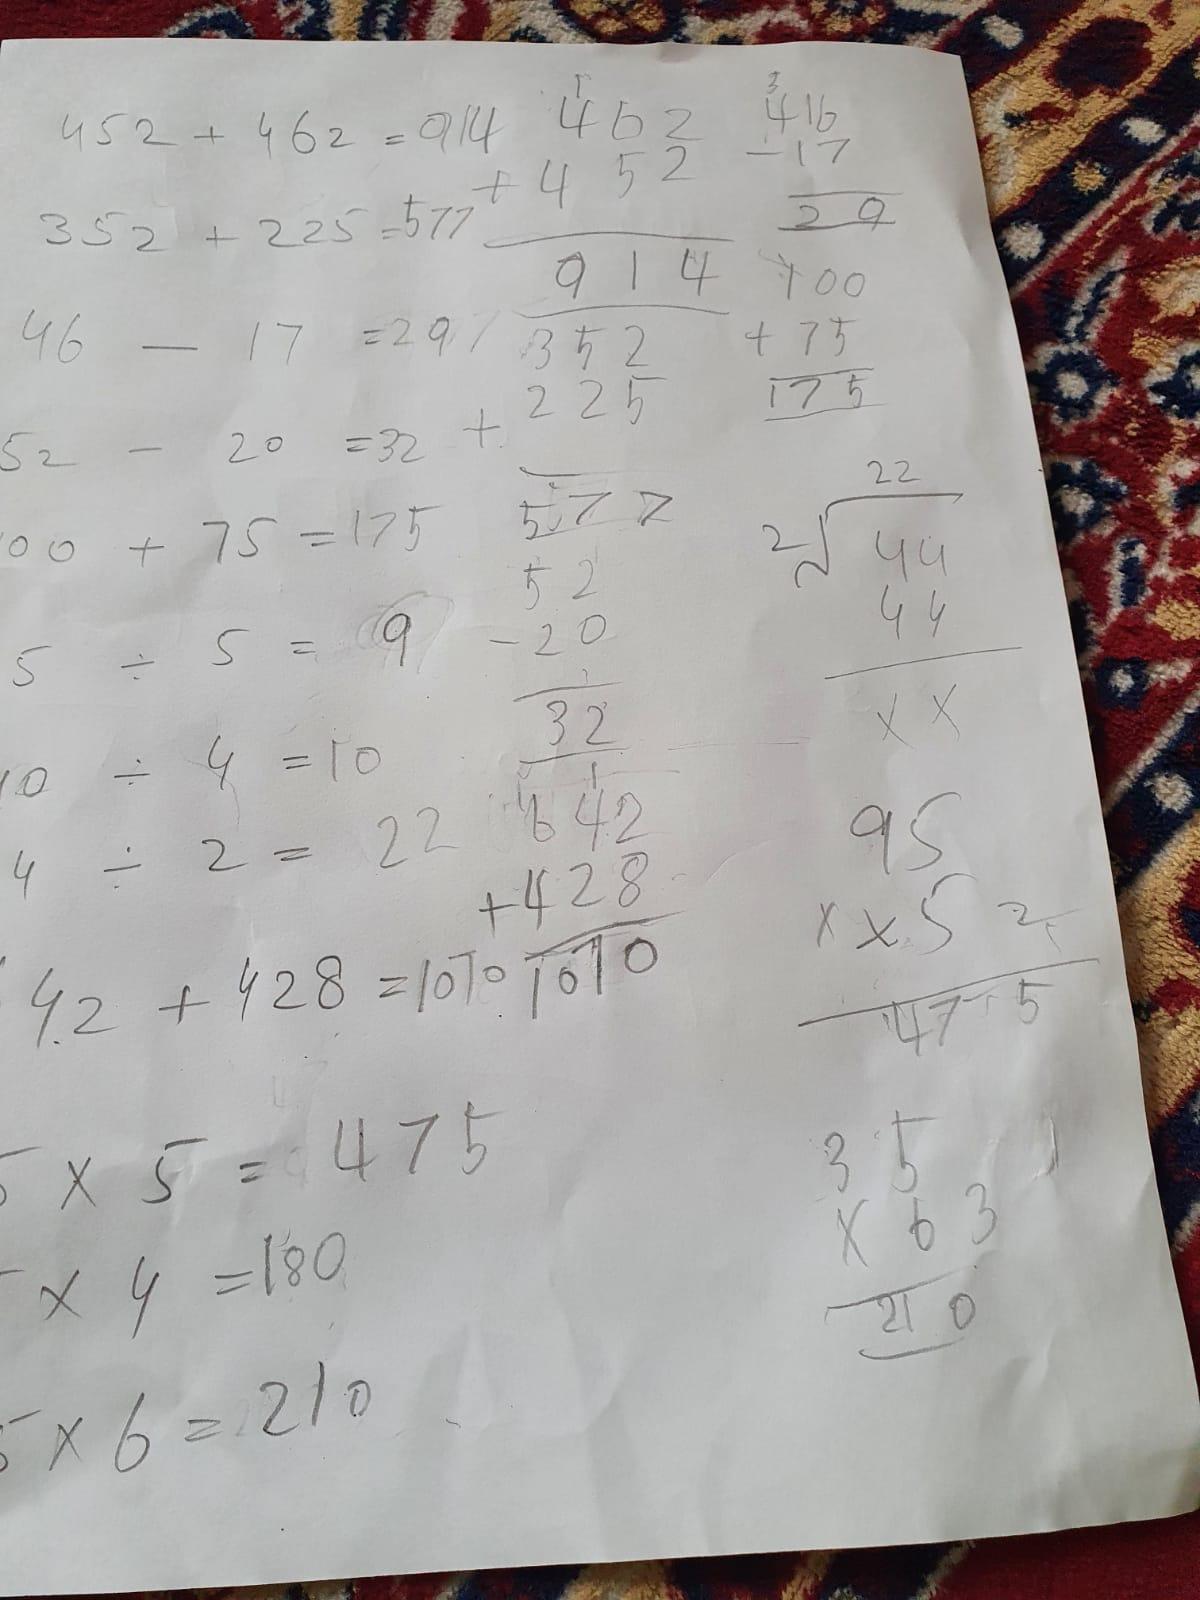 452 + 462 = 914
352 + 225 = 577
46 - 17 = 29
52 - 20 = 32
00 + 75 = 175
5 ÷ 5 = 9
10 ÷ 4 = 10
4 ÷ 2 = 22
42 + 428 = 1070
5 × 5 = 475
× 4 = 180
5 × 6 = 210
1
462
+ 452
914
352
+ 225
577
52
- 20
32
1
642
+ 428
1070
3
416
- 17
29
100
+ 75
175
22
2√44
44
× ×
95
× × 5 2
475
35
× 6 3
210